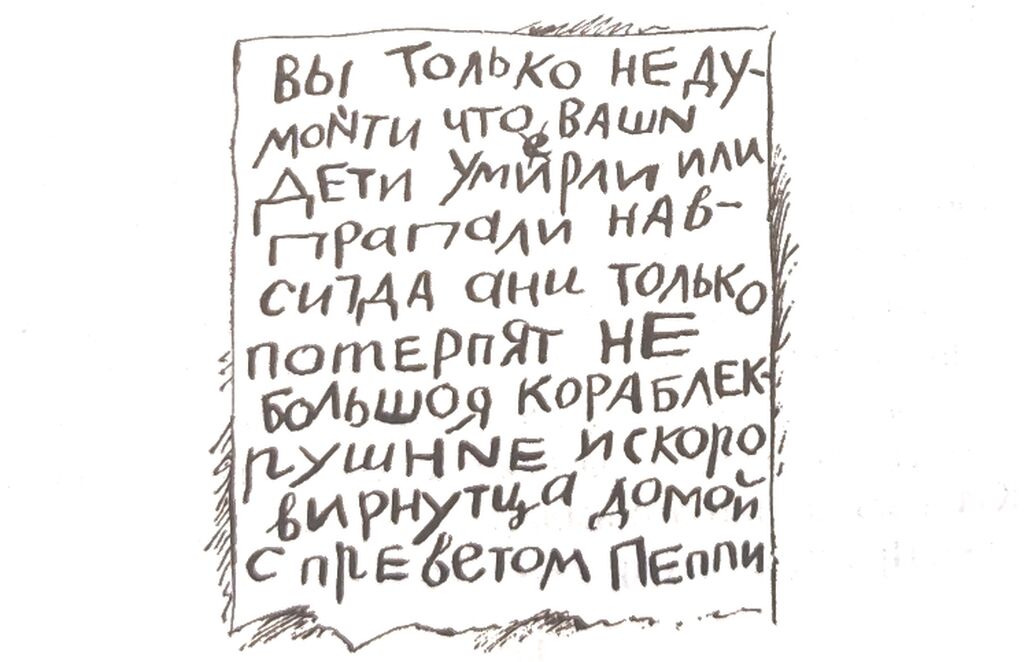 ВЫ ТОЛЬКО НЕ ДУ-
МОЙТИ ЧТО ВАШИ
ДЕТИ УМИРЛИ ИЛИ
ПРАПАЛИ НАВ-
СИГДА АНИ ТОЛЬКО
ПОТЕРПЯТ НЕ
БОЛЬШОЯ КОРАБЛЕК-
РУШНИЕ И СКОРО
ВИРНУТЦА ДОМОЙ
С ПРЕВЕТОМ ПЕППИ